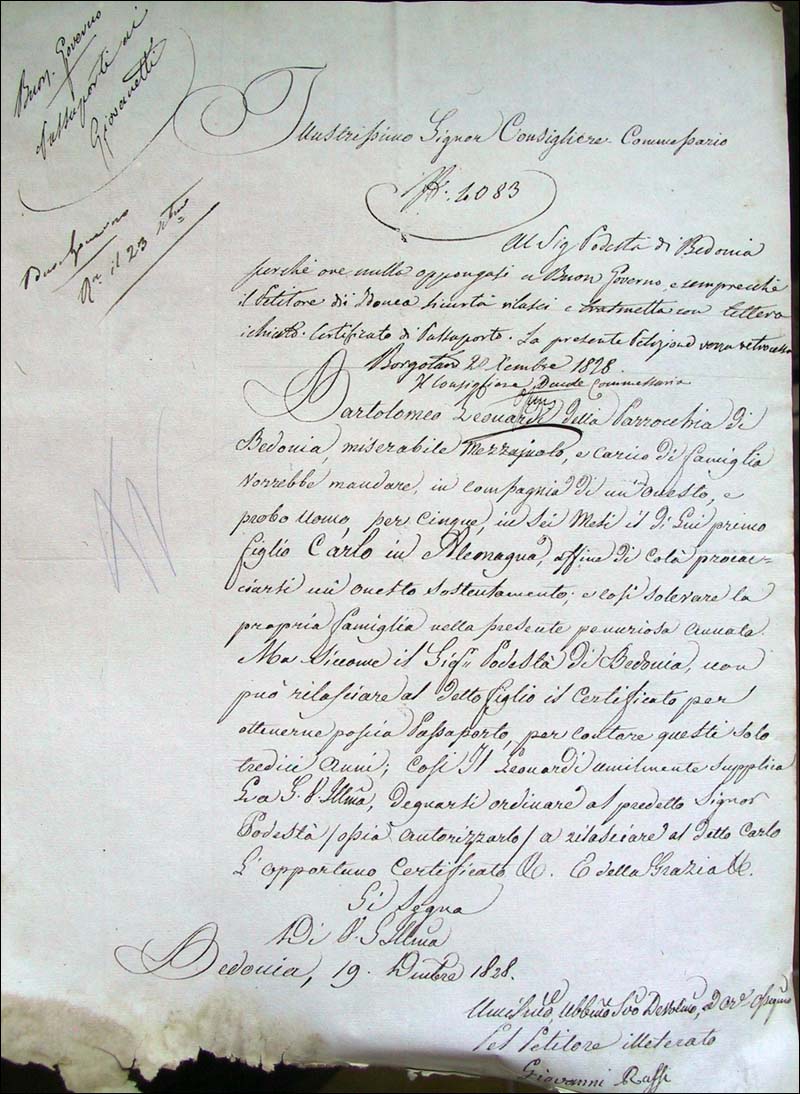 Buon Governo
Passaporti di
Giovanetti
Buon Governo
il 23
Illustrissimo Signor Consigliere Commessario
N. 4083
Al Sig Podestà di Bedonia
perchè ove nulla oppongasi a Buon Governo, e semprecchè
il Petitore di Idonea sicurtà rilasci e trasmetta con lettera
Certificato di Passaporto. La presente Petizione verrà
Borgotaro Xembre 1828.
Il Consigliere Commessario
Bartolomeo Leonardi della Parrocchia di
Bedonia, miserabile Mezzajuolo, e carico di famiglia
vorrebbe mandare, in compagnia di un' onesto, e
probo uomo, per cinque, in sei Mesi il di Lui primo
figlio Carlo in Alemagna, affine di colà procac=
ciarsi un onesto sostentamento; e così solevare la
propria famiglia nella presente penuriosa annata.
Ma siccome il Sigr. Podestà di Bedonia, non
può rilasciare al detto figlio il Certificato per
ottenerne poscia Passaporto, per contare questi solo
tredici anni; così Il Leonardi umilmente supplica
La S. V. Illma, degnarsi ordinare al predetto Signor
Podestà /ossia autorizzarlo/ a rilasciare al detto Carlo
L'opportuno Certificato &. E della Grazia &.
Si segna
Di V. S. Illma
Bedonia, 19. Dicmbre 1828.
Umilmo, Ubbmo Svo Devotmo,
Pel Petitore illeterato
Giovanni Raffi